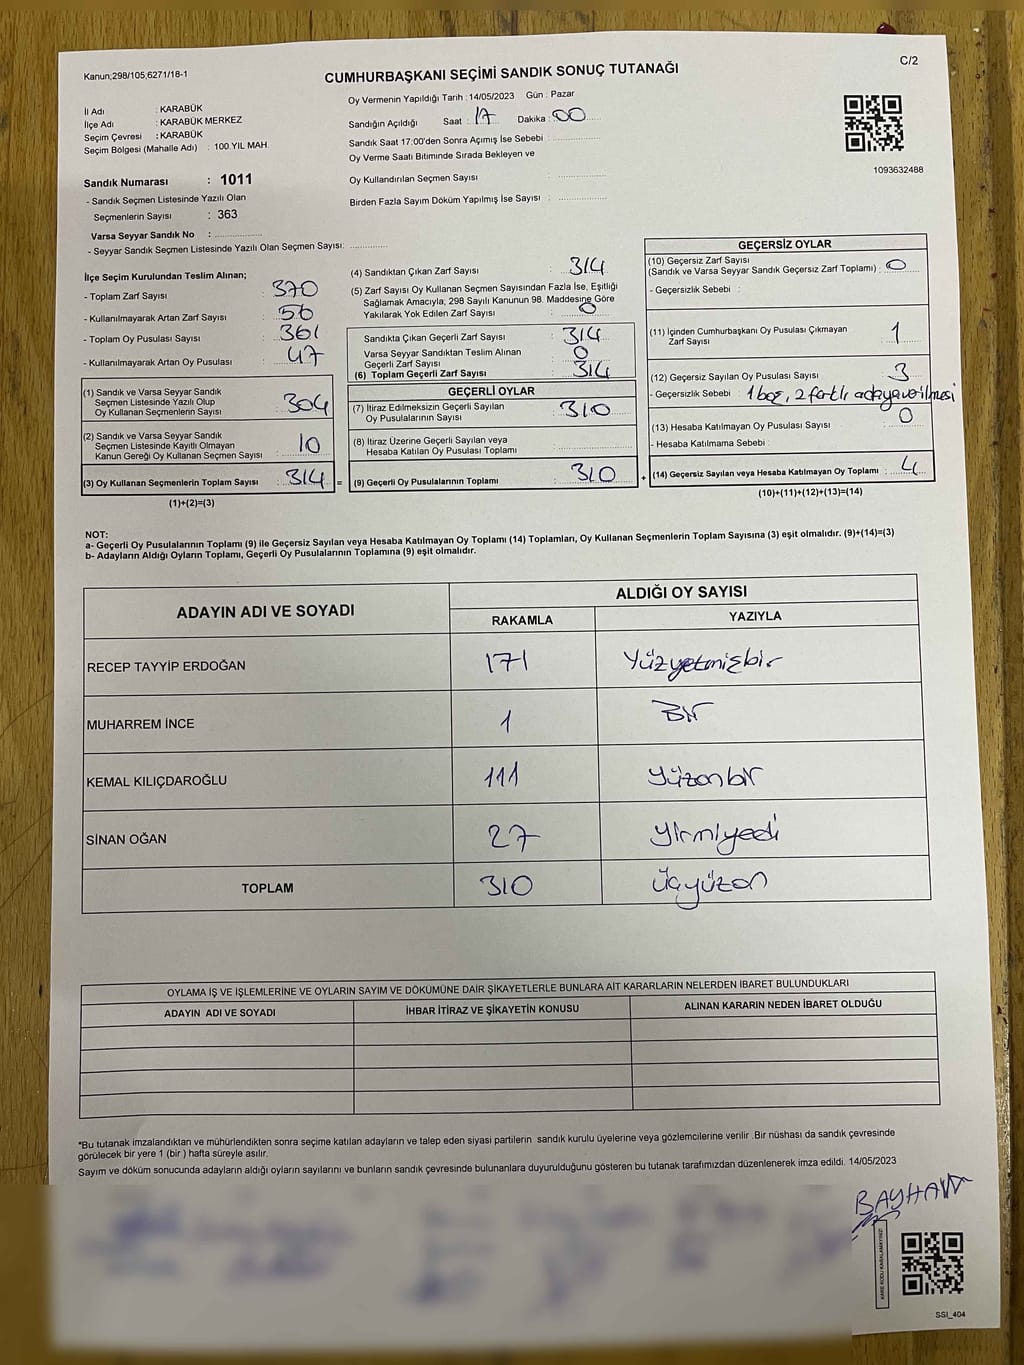 Kanun;298/105,6271/18-1
C/2
CUMHURBAŞKANI SEÇİMİ SANDIK SONUÇ TUTANAĞI
Oy Vermenin Yapıldığı Tarih : 14/05/2023 Gün : Pazar
İl Adı : KARABÜK
İlçe Adı : KARABÜK MERKEZ
Seçim Çevresi : KARABÜK
Seçim Bölgesi (Mahalle Adı) : 100.YIL MAH.
Sandığın Açıldığı Saat : 17 Dakika : 00
Sandık Saat 17:00'den Sonra Açımış İse Sebebi :
Oy Verme Saati Bitiminde Sırada Bekleyen ve
Oy Kullandırılan Seçmen Sayısı :
Birden Fazla Sayım Döküm Yapılmış İse Sayısı :
1093632488
Sandık Numarası : 1011
- Sandık Seçmen Listesinde Yazılı Olan
Seçmenlerin Sayısı : 363
Varsa Seyyar Sandık No :
- Seyyar Sandık Seçmen Listesinde Yazılı Olan Seçmen Sayısı:
İlçe Seçim Kurulundan Teslim Alınan;
- Toplam Zarf Sayısı : 370
- Kullanılmayarak Artan Zarf Sayısı : 56
- Toplam Oy Pusulası Sayısı : 361
- Kullanılmayarak Artan Oy Pusulası : 47
(1) Sandık ve Varsa Seyyar Sandık
Seçmen Listesinde Yazılı Olup
Oy Kullanan Seçmenlerin Sayısı : 304
(2) Sandık ve Varsa Seyyar Sandık
Seçmen Listesinde Kayıtlı Olmayan
Kanun Gereği Oy Kullanan Seçmen Sayısı : 10
(3) Oy Kullanan Seçmenlerin Toplam Sayısı : 314 =
(1)+(2)=(3)
(4) Sandıktan Çıkan Zarf Sayısı : 314
(5) Zarf Sayısı Oy Kullanan Seçmen Sayısından Fazla İse, Eşitliği
Sağlamak Amacıyla, 298 Sayılı Kanunun 98. Maddesine Göre
Yakılarak Yok Edilen Zarf Sayısı : 0
Sandıkta Çıkan Geçerli Zarf Sayısı : 314
Varsa Seyyar Sandıktan Teslim Alınan
Geçerli Zarf Sayısı : 0
(6) Toplam Geçerli Zarf Sayısı : 314
GEÇERLİ OYLAR
(7) İtiraz Edilmeksizin Geçerli Sayılan
Oy Pusulasının Sayısı : 310
(8) İtiraz Üzerine Geçerli Sayılan veya
Hesaba Katılan Oy Pusulası Toplamı :
(9) Geçerli Oy Pusulalarının Toplamı : 310 +
GEÇERSİZ OYLAR
(10) Geçersiz Zarf Sayısı
(Sandık ve Varsa Seyyar Sandık Geçersiz Zarf Toplamı) : 0
- Geçersizlik Sebebi :
(11) İçinden Cumhurbaşkanı Oy Pusulası Çıkmayan
Zarf Sayısı : 1
(12) Geçersiz Sayılan Oy Pusulası Sayısı : 3
- Geçersizlik Sebebi : 1 boş, 2 farklı adaya verilmesi
(13) Hesaba Katılmayan Oy Pusulası Sayısı : 0
- Hesaba Katılmama Sebebi :
(14) Geçersiz Sayılan veya Hesaba Katılmayan Oy Toplamı : 4
(10)+(11)+(12)+(13)=(14)
NOT:
a- Geçerli Oy Pusulalarının Toplamı (9) ile Geçersiz Sayılan veya Hesaba Katılmayan Oy Toplamı (14) Toplamları, Oy Kullanan Seçmenlerin Toplam Sayısına (3) eşit olmalıdır. (9)+(14)=(3)
b- Adayların Aldığı Oyların Toplamı, Geçerli Oy Pusulalarının Toplamına (9) eşit olmalıdır.
ADAYIN ADI VE SOYADI ALDIĞI OY SAYISI
RAKAMLA YAZIYLA
RECEP TAYYİP ERDOĞAN 171 Yüzyetmişbir
MUHARREM İNCE 1 Bir
KEMAL KILIÇDAROĞLU 111 Yüzonbir
SİNAN OĞAN 27 yirmiyedi
TOPLAM 310 üçyüzon
OYLAMA İŞ VE İŞLEMLERİNE VE OYLARIN SAYIM VE DÖKÜMÜNE DAİR ŞİKAYETLERLE BUNLARA AİT KARARLARIN NELERDEN İBARET BULUNDUKLARI
ADAYIN ADI VE SOYADI İHBAR İTİRAZ VE ŞİKAYETİN KONUSU ALINAN KARARIN NEDEN İBARET OLDUĞU
*Bu tutanak imzalandıktan ve mühürlendikten sonra seçime katılan adayların ve talep eden siyasi partilerin sandık kurulu üyelerine veya gözlemcilerine verilir .Bir nüshası da sandık çevresinde
görülecek bir yere 1 (bir ) hafta süreyle asılır.
Sayım ve döküm sonucunda adayların aldığı oyların sayılarını ve bunların sandık çevresinde bulunanlara duyurulduğunu gösteren bu tutanak tarafımızdan düzenlenerek imza edildi. 14/05/2023
BAYHAN
KARE KODU KARALAMAYINIZ!
SSI_404